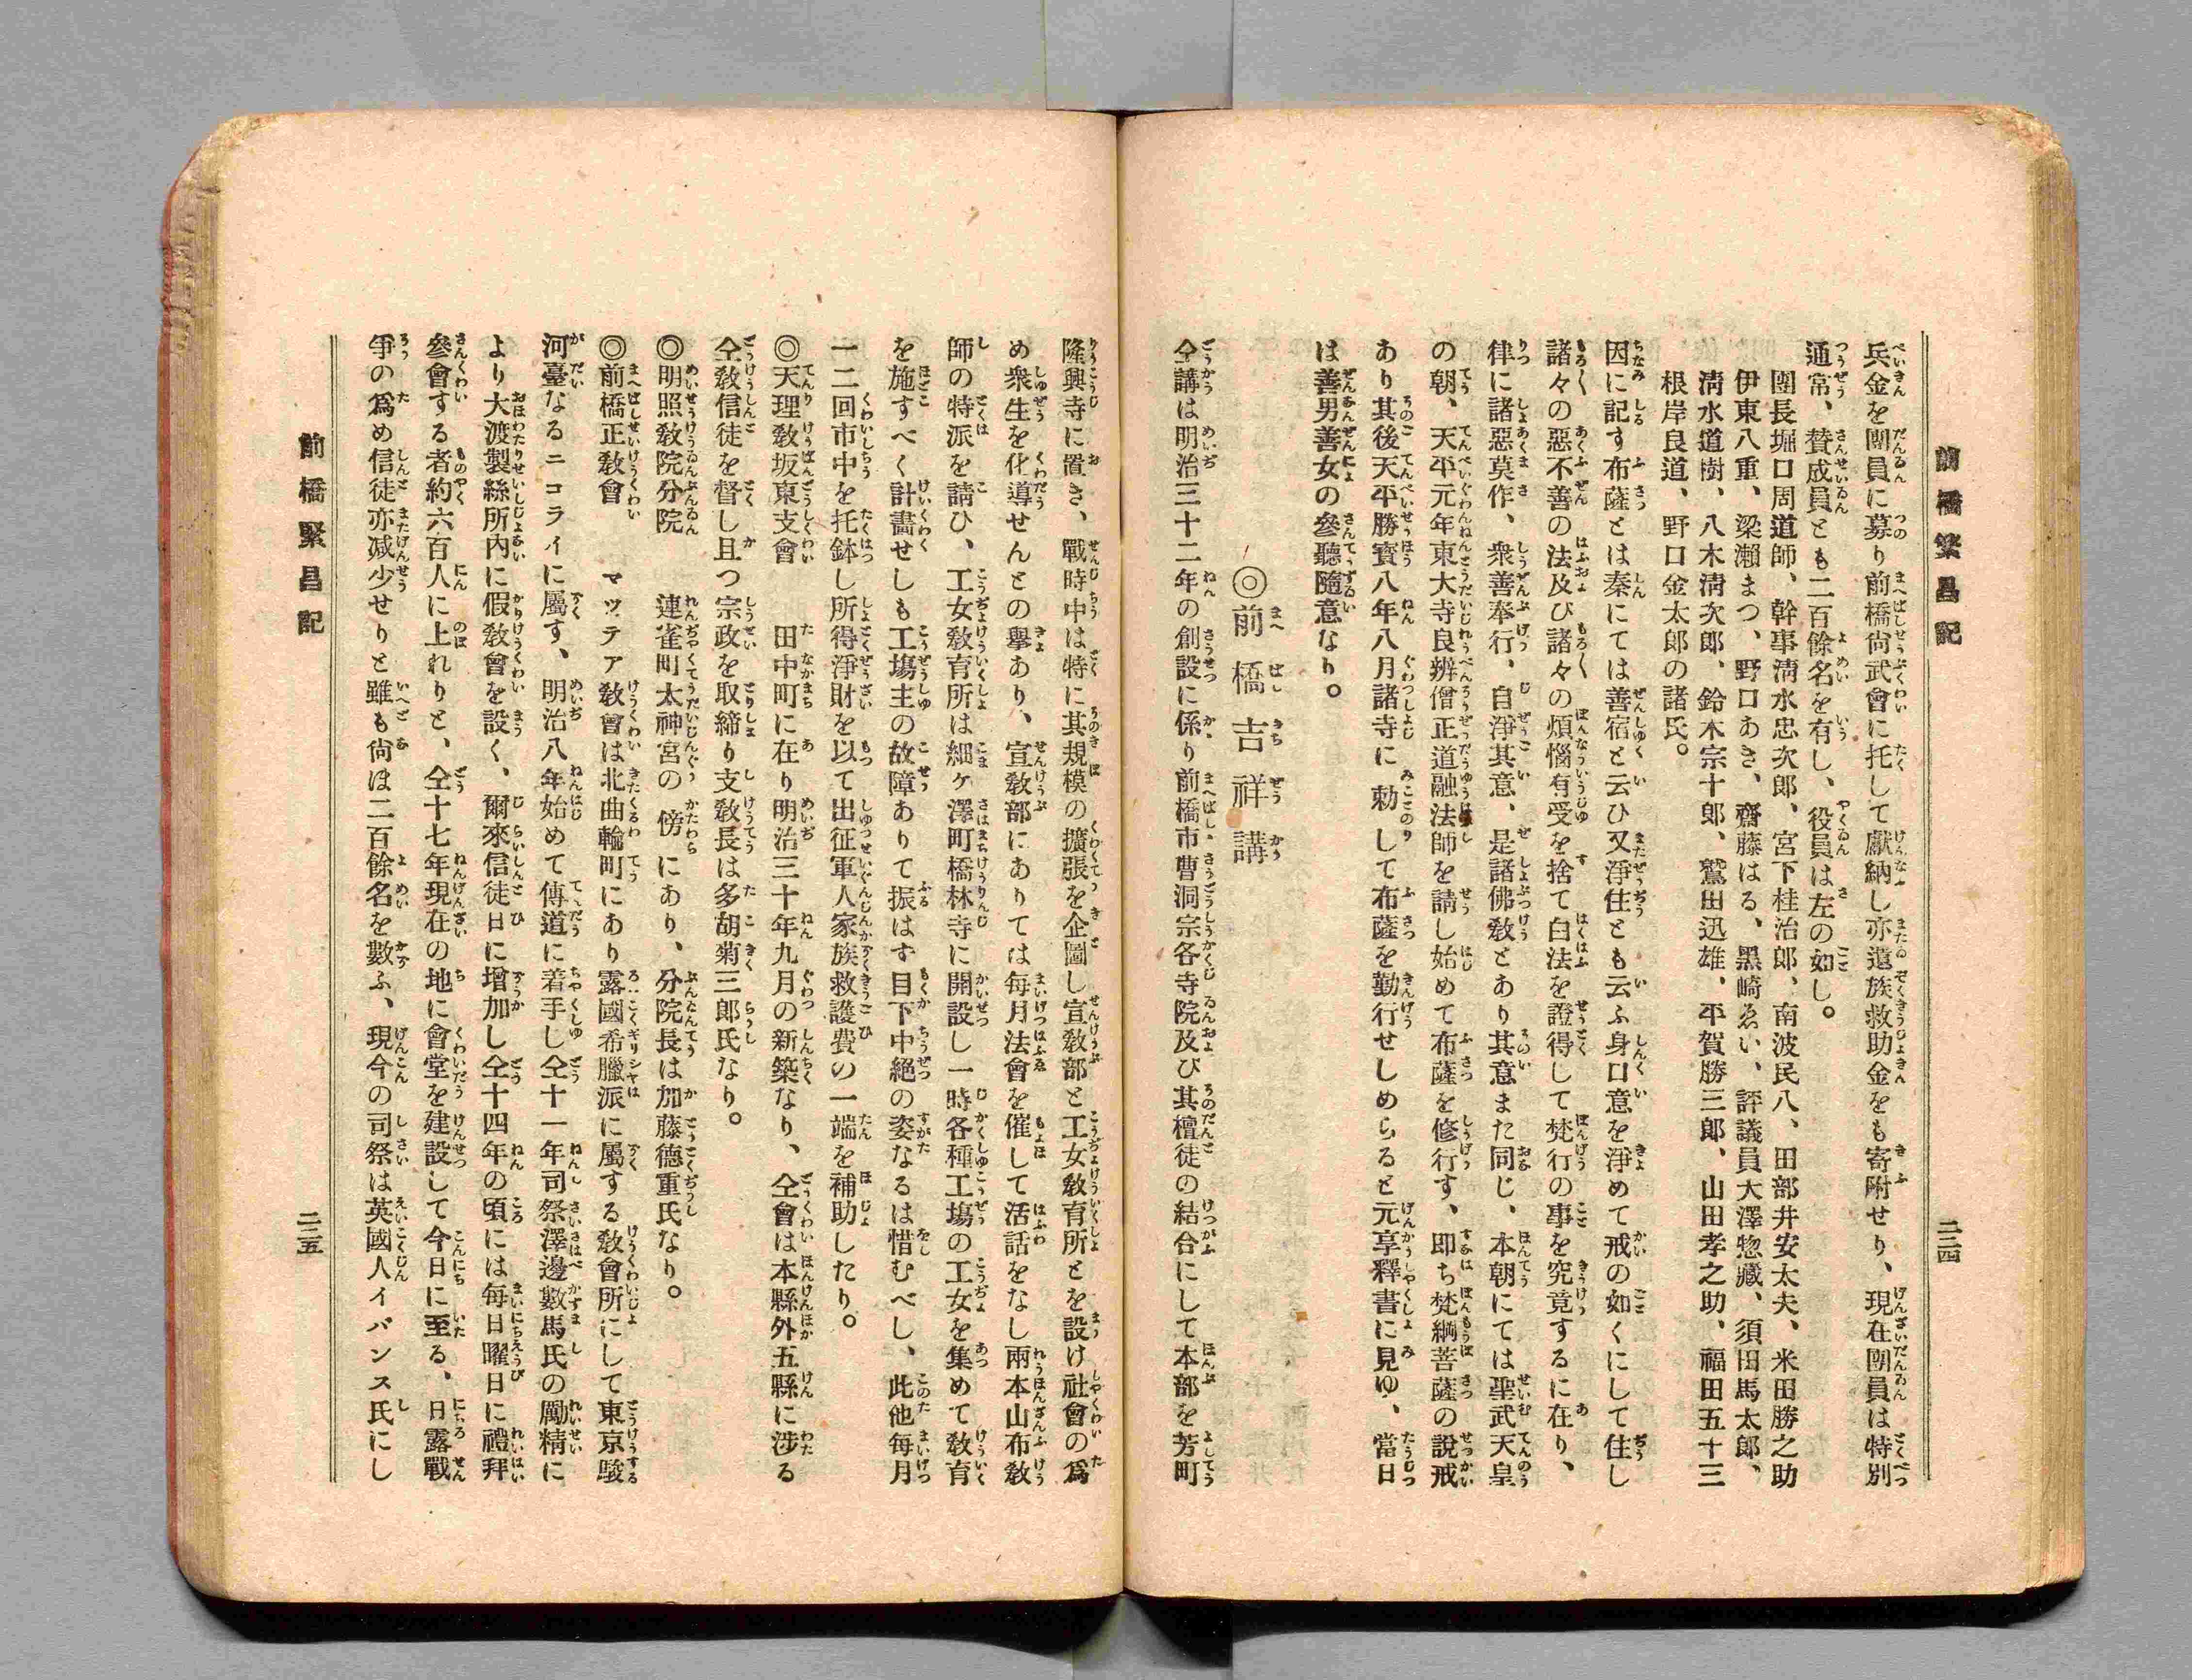 前橋繁昌記
二三四
兵金を團員に募り前橋尙武會に托して獻納し亦遺族救助金をも寄附せり、現在團員は特別
通常、賛成員とも二百餘名を有し、役員は左の如し。
團長堀口周道師、幹事淸水忠次郞、宮下桂治郞、南波民八、田部井安太夫、米田勝之助
伊東八重、梁瀨まつ、野口あき、齋藤はる、黑崎ゑい、評議員大澤惣藏、須田馬太郞、
淸水道樹、八木淸次郞、鈴木宗十郞、鷲田迅雄、平賀勝三郞、山田孝之助、福田五十三
根岸良道、野口金太郞の諸氏。
因に記す布薩とは秦にては善宿と云ひ又淨住とも云ふ身口意を淨めて戒の如くにして住し
諸々の惡不善の法及び諸々の煩惱有受を捨て白法を證得して梵行の事を究竟するに在り、
律に諸惡莫作、衆善奉行、自淨其意、是諸佛敎とあり其意また同じ、本朝にては聖武天皇
の朝、天平元年東大寺良辨僧正道融法師を請し始めて布薩を修行す、即ち梵綱菩薩の說戒
あり其後天平勝寳八年八月諸寺に勅して布薩を勤行せしめらると元享釋書に見ゆ、當日
は善男善女の參聽隨意なり。
◎前橋吉祥講
仝講は明治三十二年の創設に係り前橋市曹洞宗各寺院及び其檀徒の結合にして本部を芳町
隆興寺に置き、戰時中は特に其規模の擴張を企圖し宣敎部と工女敎育所とを設け社會の爲
め衆生を化導せんとの擧あり、宣敎部にありては每月法會を催して活話をなし兩本山布敎
師の特派を請ひ、工女敎育所は細ヶ澤町橋林寺に開設し一時各種工塲の工女を集めて敎育
を施すべく計畫せしも工塲主の故障ありて振はず目下中絕の姿なるは惜むべし、此他每月
一二回市中を托鉢し所得淨財を以て出征軍人家族救護費の一端を補助したり。
◎天理敎坂東支會　田中町に在り明治三十年九月の新築なり、仝會は本縣外五縣に涉る
仝敎信徒を督し且つ宗政を取締り支敎長は多胡菊三郞氏なり。
◎明照敎院分院　連雀町太神宮の傍にあり、分院長は加藤德重氏なり。
◎前橋正敎會　マッテア敎會は北曲輪町にあり露國希臘派に屬する敎會所にして東京駿
河臺なるニコライに屬す、明治八年始めて傳道に着手し仝十一年司祭澤邊數馬氏の勵精に
より大渡製絲所內に假敎會を設く、爾來信徒日に增加し仝十四年の頃には每日曜日に禮拜
參會する者約六百人に上れりと、仝十七年現在の地に會堂を建設して今日に至る、日露戰
爭の爲め信徒亦減少せりと雖も尙ほ二百餘名を數ふ、現今の司祭は英國人イバンス氏にし
前橋繁昌記
二三五